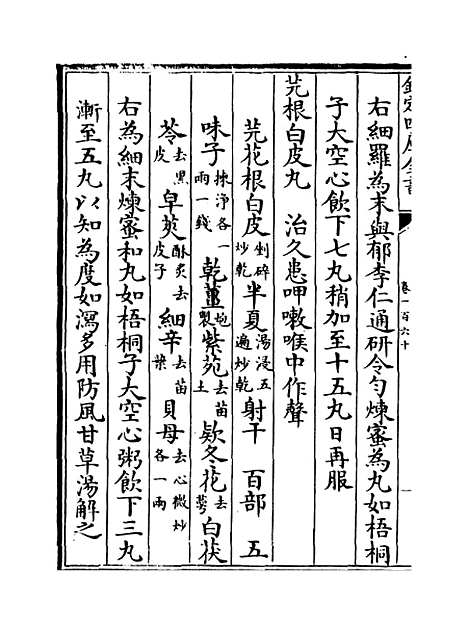 欽定四庫全書
卷一百六十
右細羅為末與郁李仁通研令勻煉蜜為丸如梧桐
子大空心飲下七丸稍加至十五丸日再服
芫根白皮丸 治久患呷嗽喉中作聲
芫花根白皮剉碎炒乾半夏湯浸五遍炒乾射干 百部 五
味子揀淨各一兩一錢乾薑炮製紫菀去苗土欵冬花去萼白茯
苓去黑皮皁莢酥炙去皮子細辛去苗葉貝母去心微炒各一兩
右為細末煉蜜和丸如梧桐子大空心粥飲下三丸
漸至五丸以知為度如瀉多用防風甘草湯解之